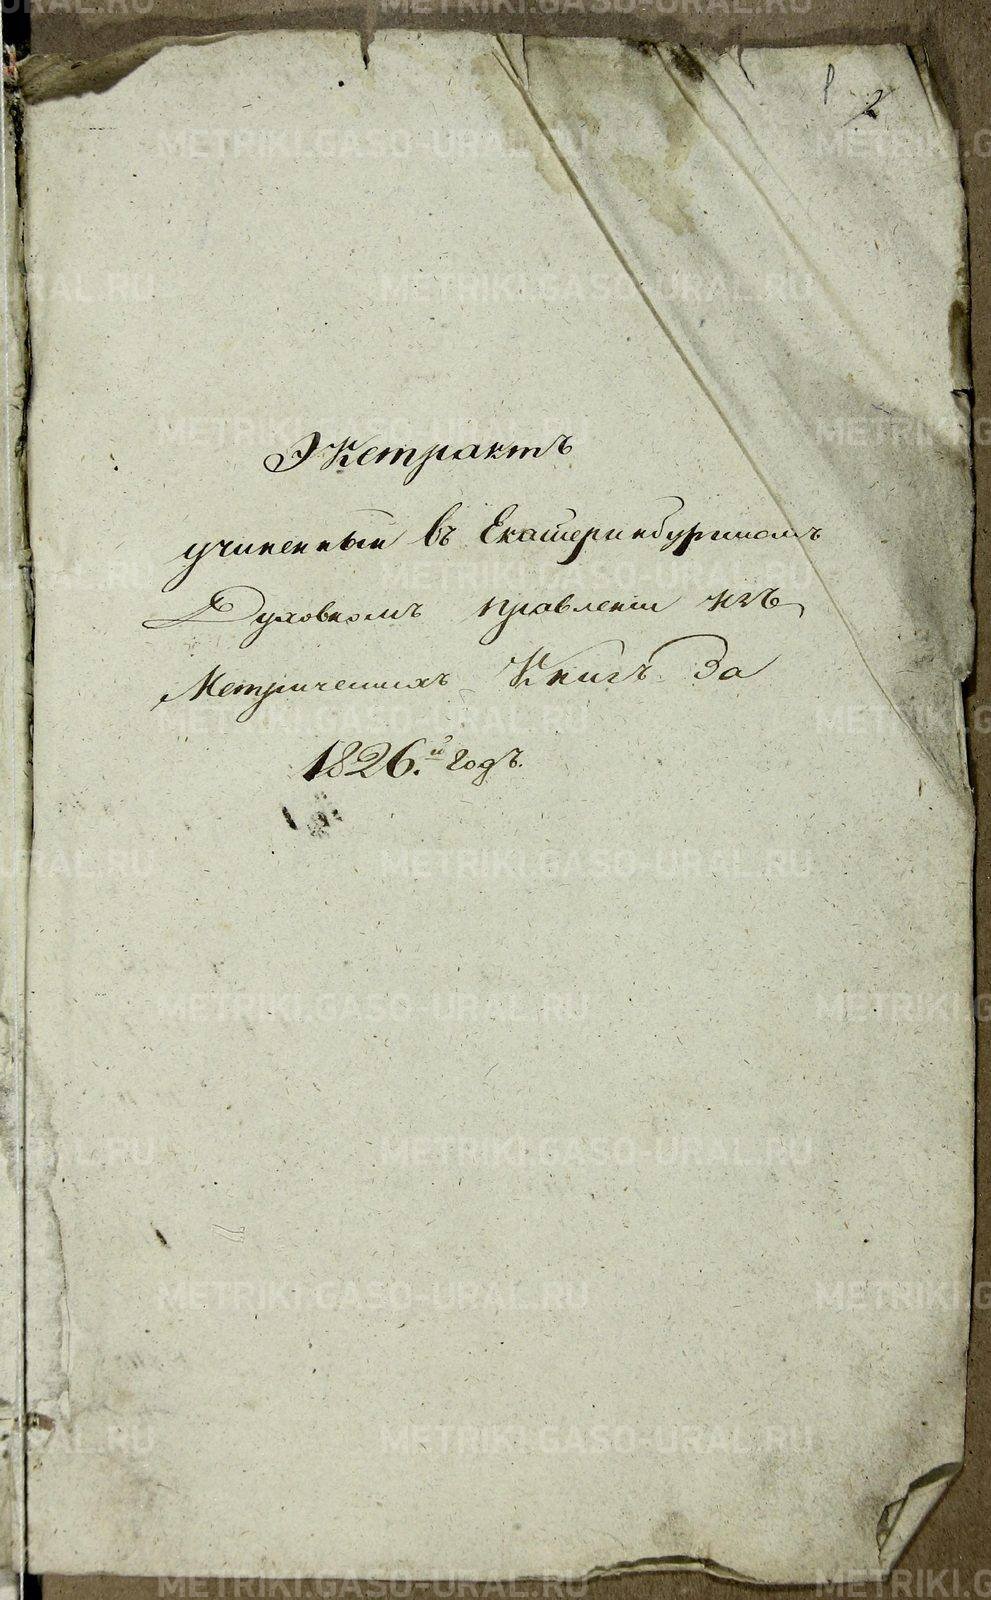 2
Экстрактъ
учиненный въ Екатеринбургскомъ
Духовномъ правленіи изъ
Метрическихъ Книгъ За
1826.й годъ.
METRIKI.GASO-URAL.RU